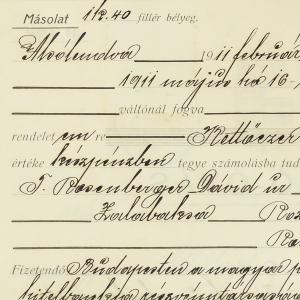 Másolat 1k.40 fillér bélyeg.
Alsólendva 1911 február
1911 május hó 16-
váltónál fogva
rendelet em re Kettőezer
értéke készpénzben tegye számolásba tud
T. Rosenberger Dávid úr
Zalabaksa Ros
Ro
Fizetendő: Budapesten a magyar
hitelbank részvénytársaság